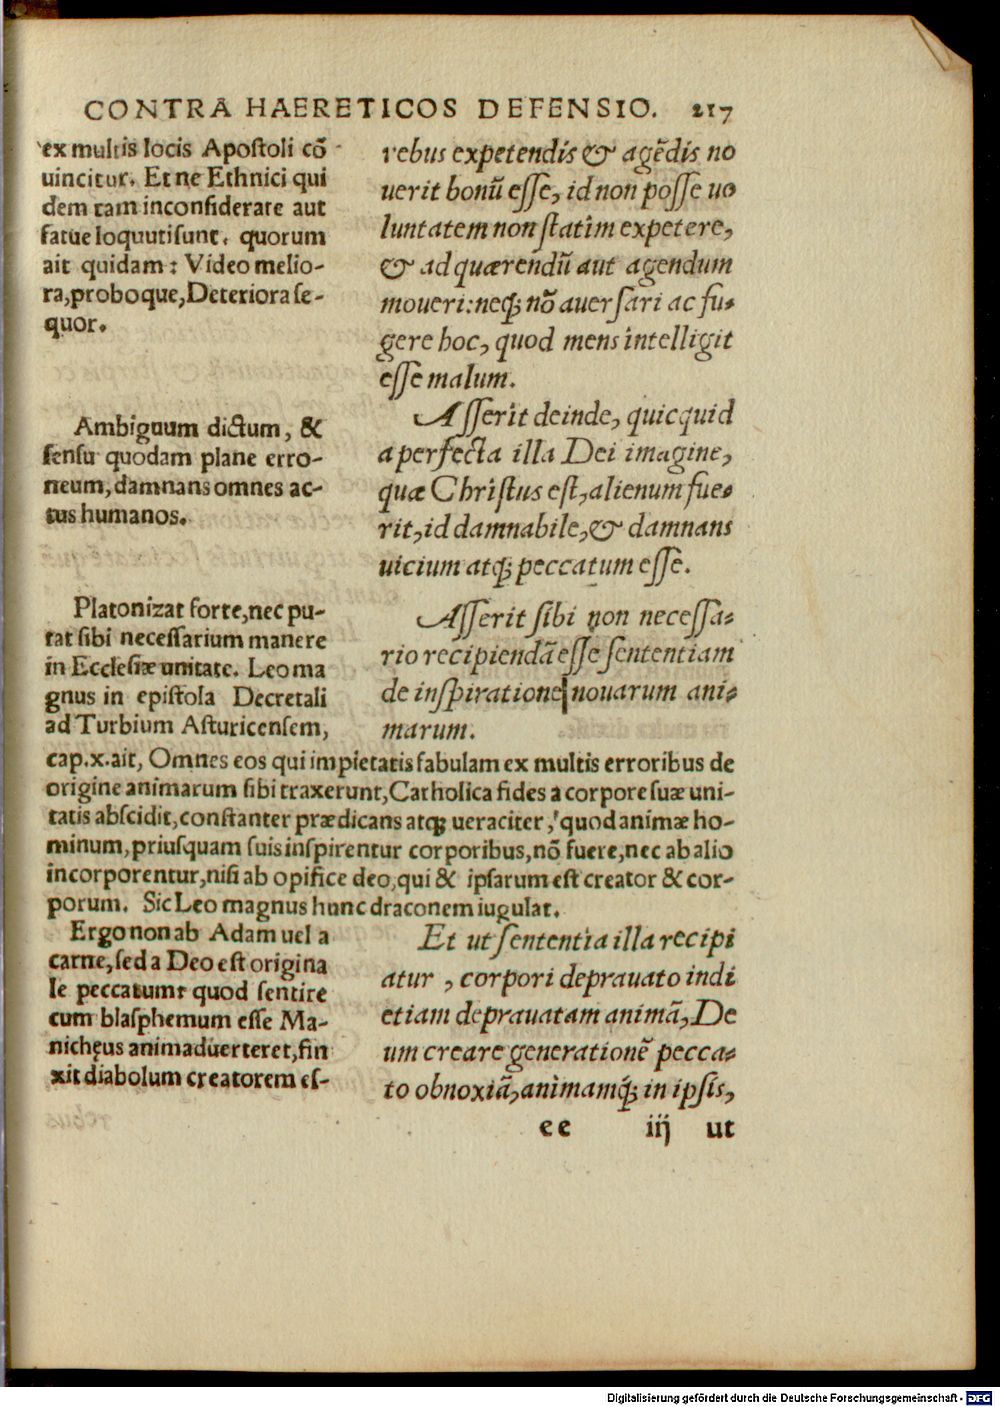 CONTRA HAERETICOS DEFENSIO. 217
ex multis locis Apostoli cō
uincitur. Et ne Ethnici qui
dem tam inconsiderate aut
fatue loquuti sunt. quorum
ait quidam: Video melio-
ra, proboque, Deteriora se-
quor.
Ambiguum dictum, &
sensu quodam plane erro-
neum, damnans omnes ac-
tus humanos.
Platonizat forte, nec pu-
tat sibi necessarium manere
in Ecclesiæ unitate. Leo ma
gnus in epistola Decretali
ad Turbium Asturicensem,
rebus expetendis & agēdis no
uerit bonū esse, id non posse uo
luntatem non statim expetere,
& ad quærendū aut agendum
moueri: neq; nō auersari ac fu-
gere hoc, quod mens intelligit
esse malum.
Asserit deinde, quicquid
a perfecta illa Dei imagine,
quæ Christus est, alienum fue-
rit, id damnabile, & damnans
uicium atq; peccatum esse.
Asserit sibi non necessa-
rio recipiendā esse sententiam
de inspiratione nouarum ani-
marum.
cap. x. ait, Omnes eos qui impietatis fabulam ex multis erroribus de
origine animarum sibi traxerunt, Catholica fides a corpore suæ uni-
tatis abscidit, constanter prædicans atq; ueraciter, quod animæ ho-
minum, priusquam suis inspirentur corporibus, nō fuere, nec ab alio
incorporentur, nisi ab opifice deo, qui & ipsarum est creator & cor-
porum. Sic Leo magnus hunc draconem iugulat.
Ergo non ab Adam uel a
carne, sed a Deo est origina
le peccatum: quod sentire
cum blasphemum esse Ma-
nichęus animaduerteret, fin
xit diabolum creatorem es-
Et ut sententia illa recipi
atur, corpori deprauato indi
etiam deprauatam animā, De
um creare generationē pecca-
to obnoxiā, animamq́; in ipsis,
ee iij ut
Digitalisierung gefördert durch die Deutsche Forschungsgemeinschaft - DFG